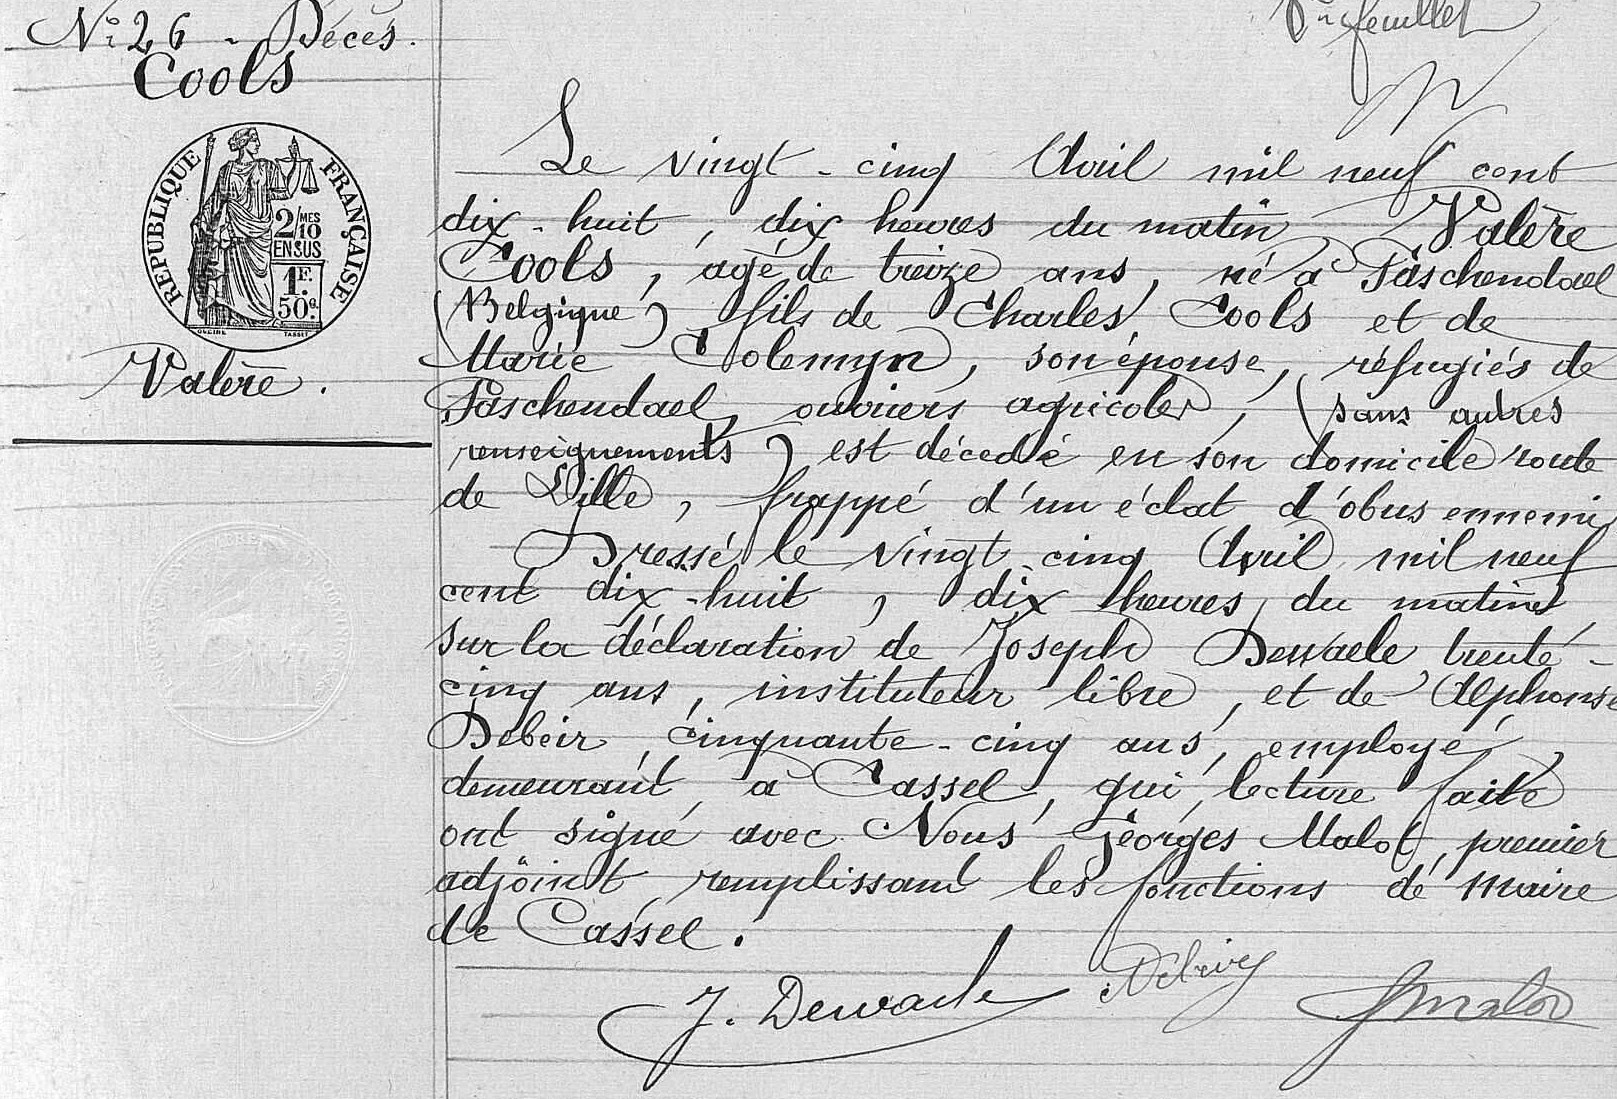 feuillet
N° 26 - Décès.
Cools
RÉPUBLIQUE FRANÇAISE
2/10 MES
EN SUS
1F.
50c.
Valère.
Le vingt-cinq Avril mil neuf cent
dix-huit, dix heures du matin Valère
Cools, agé de treize ans, né à Paschendael
(Belgique) fils de Charles Cools et de
Marie Colemyn, son épouse, réfugiés de
Paschendael, ouvriers agricoles, (sans autres
renseignements) est décédé en son domicile route
de Lille, frappé d'un éclat d'obus ennemi
Dressé le vingt cinq Avril mil neuf
cent dix-huit, dix heures du matin
sur la déclaration de Joseph Dewaele, trente-
cinq ans, instituteur libre, et de Alphonse
Debeir, cinquante-cinq ans, employé,
demeurant à Cassel, qui, lecture faite
ont signé avec Nous Georges Malot, premier
adjoint remplissant les fonctions de Maire
de Cassel.
J. Dewaele